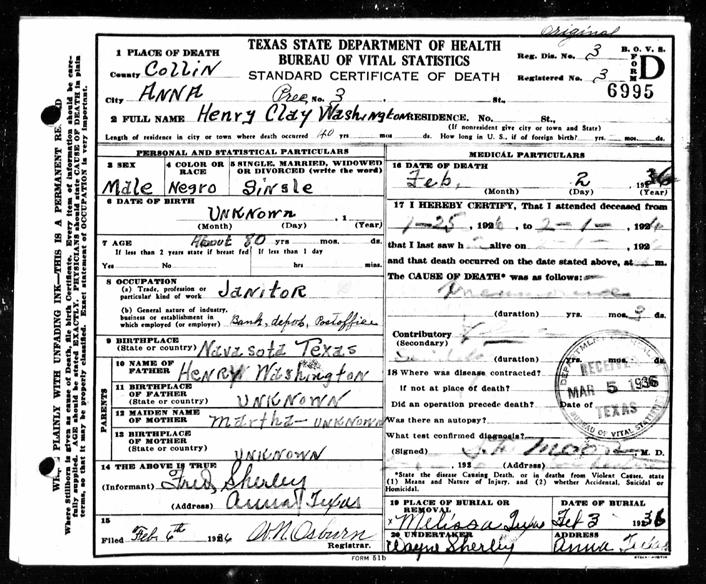 Original
TEXAS STATE DEPARTMENT OF HEALTH
BUREAU OF VITAL STATISTICS
STANDARD CERTIFICATE OF DEATH
Reg. Dis. No. 3
Registered No. 3
B. O. V. S.
FORM D
6995
1 PLACE OF DEATH
County COLLIN
City ANNA Prec. No. 3 St.,
2 FULL NAME Henry Clay Washington RESIDENCE. No. St.,
(If nonresident give city or town and State)
Length of residence in city or town where death occurred 40 yrs mos. ds. How long in U. S., if of foreign birth? yrs. mos. ds.
PERSONAL AND STATISTICAL PARTICULARS
3 SEX Male
4 COLOR OR RACE Negro
5 SINGLE, MARRIED, WIDOWED OR DIVORCED (write the word) Single
6 DATE OF BIRTH
UNKNOWN , 1
(Month) (Day) (Year)
7 AGE About 80 yrs mos. ds.
If less than 2 years state if breast fed If less than 1 day
Yes No hrs mins.
8 OCCUPATION
(a) Trade, profession or particular kind of work JANITOR
(b) General nature of industry, business or establishment in which employed (or employer) Bank, depot, Postoffice
9 BIRTHPLACE
(State or country) Navasota Texas
PARENTS
10 NAME OF FATHER HENRY Washington
11 BIRTHPLACE OF FATHER (State or country) UNKNOWN
12 MAIDEN NAME OF MOTHER Martha - UNKNOWN
13 BIRTHPLACE OF MOTHER (State or country) UNKNOWN
14 THE ABOVE IS TRUE
(Informant) Fred Sherley
(Address) Anna Texas
15
Filed Feb 6th 1936 W.N. Osburn
Registrar.
MEDICAL PARTICULARS
16 DATE OF DEATH
Feb, 2 1936
(Month) (Day) (Year)
17 I HEREBY CERTIFY, That I attended deceased from
1-25 192 to 2-1- 192
that I last saw h alive on 192
and that death occurred on the date stated above, at m.
The CAUSE OF DEATH* was as follows:
(duration) yrs. mos. 9 ds.
Contributory
(Secondary)
(duration) yrs. mos. ds.
18 Where was disease contracted?
if not at place of death?
Did an operation precede death? Date of
Was there an autopsy?
What test confirmed diagnosis?
(Signed) M. D.
, 192 (Address)
*State the disease Causing Death, or in deaths from Violent Causes, state (1) Means and Nature of Injury, and (2) whether Accidental, Suicidal or Homicidal.
RECEIVED
MAR 5 1936
TEXAS
BUREAU OF VITAL STATISTICS
19 PLACE OF BURIAL OR REMOVAL DATE OF BURIAL
Melissa Texas Feb 3 1936
20 UNDERTAKER ADDRESS
Wayne Sherley Anna Texas
FORM 51b
PLAINLY WITH UNFADING INK—THIS IS A PERMANENT